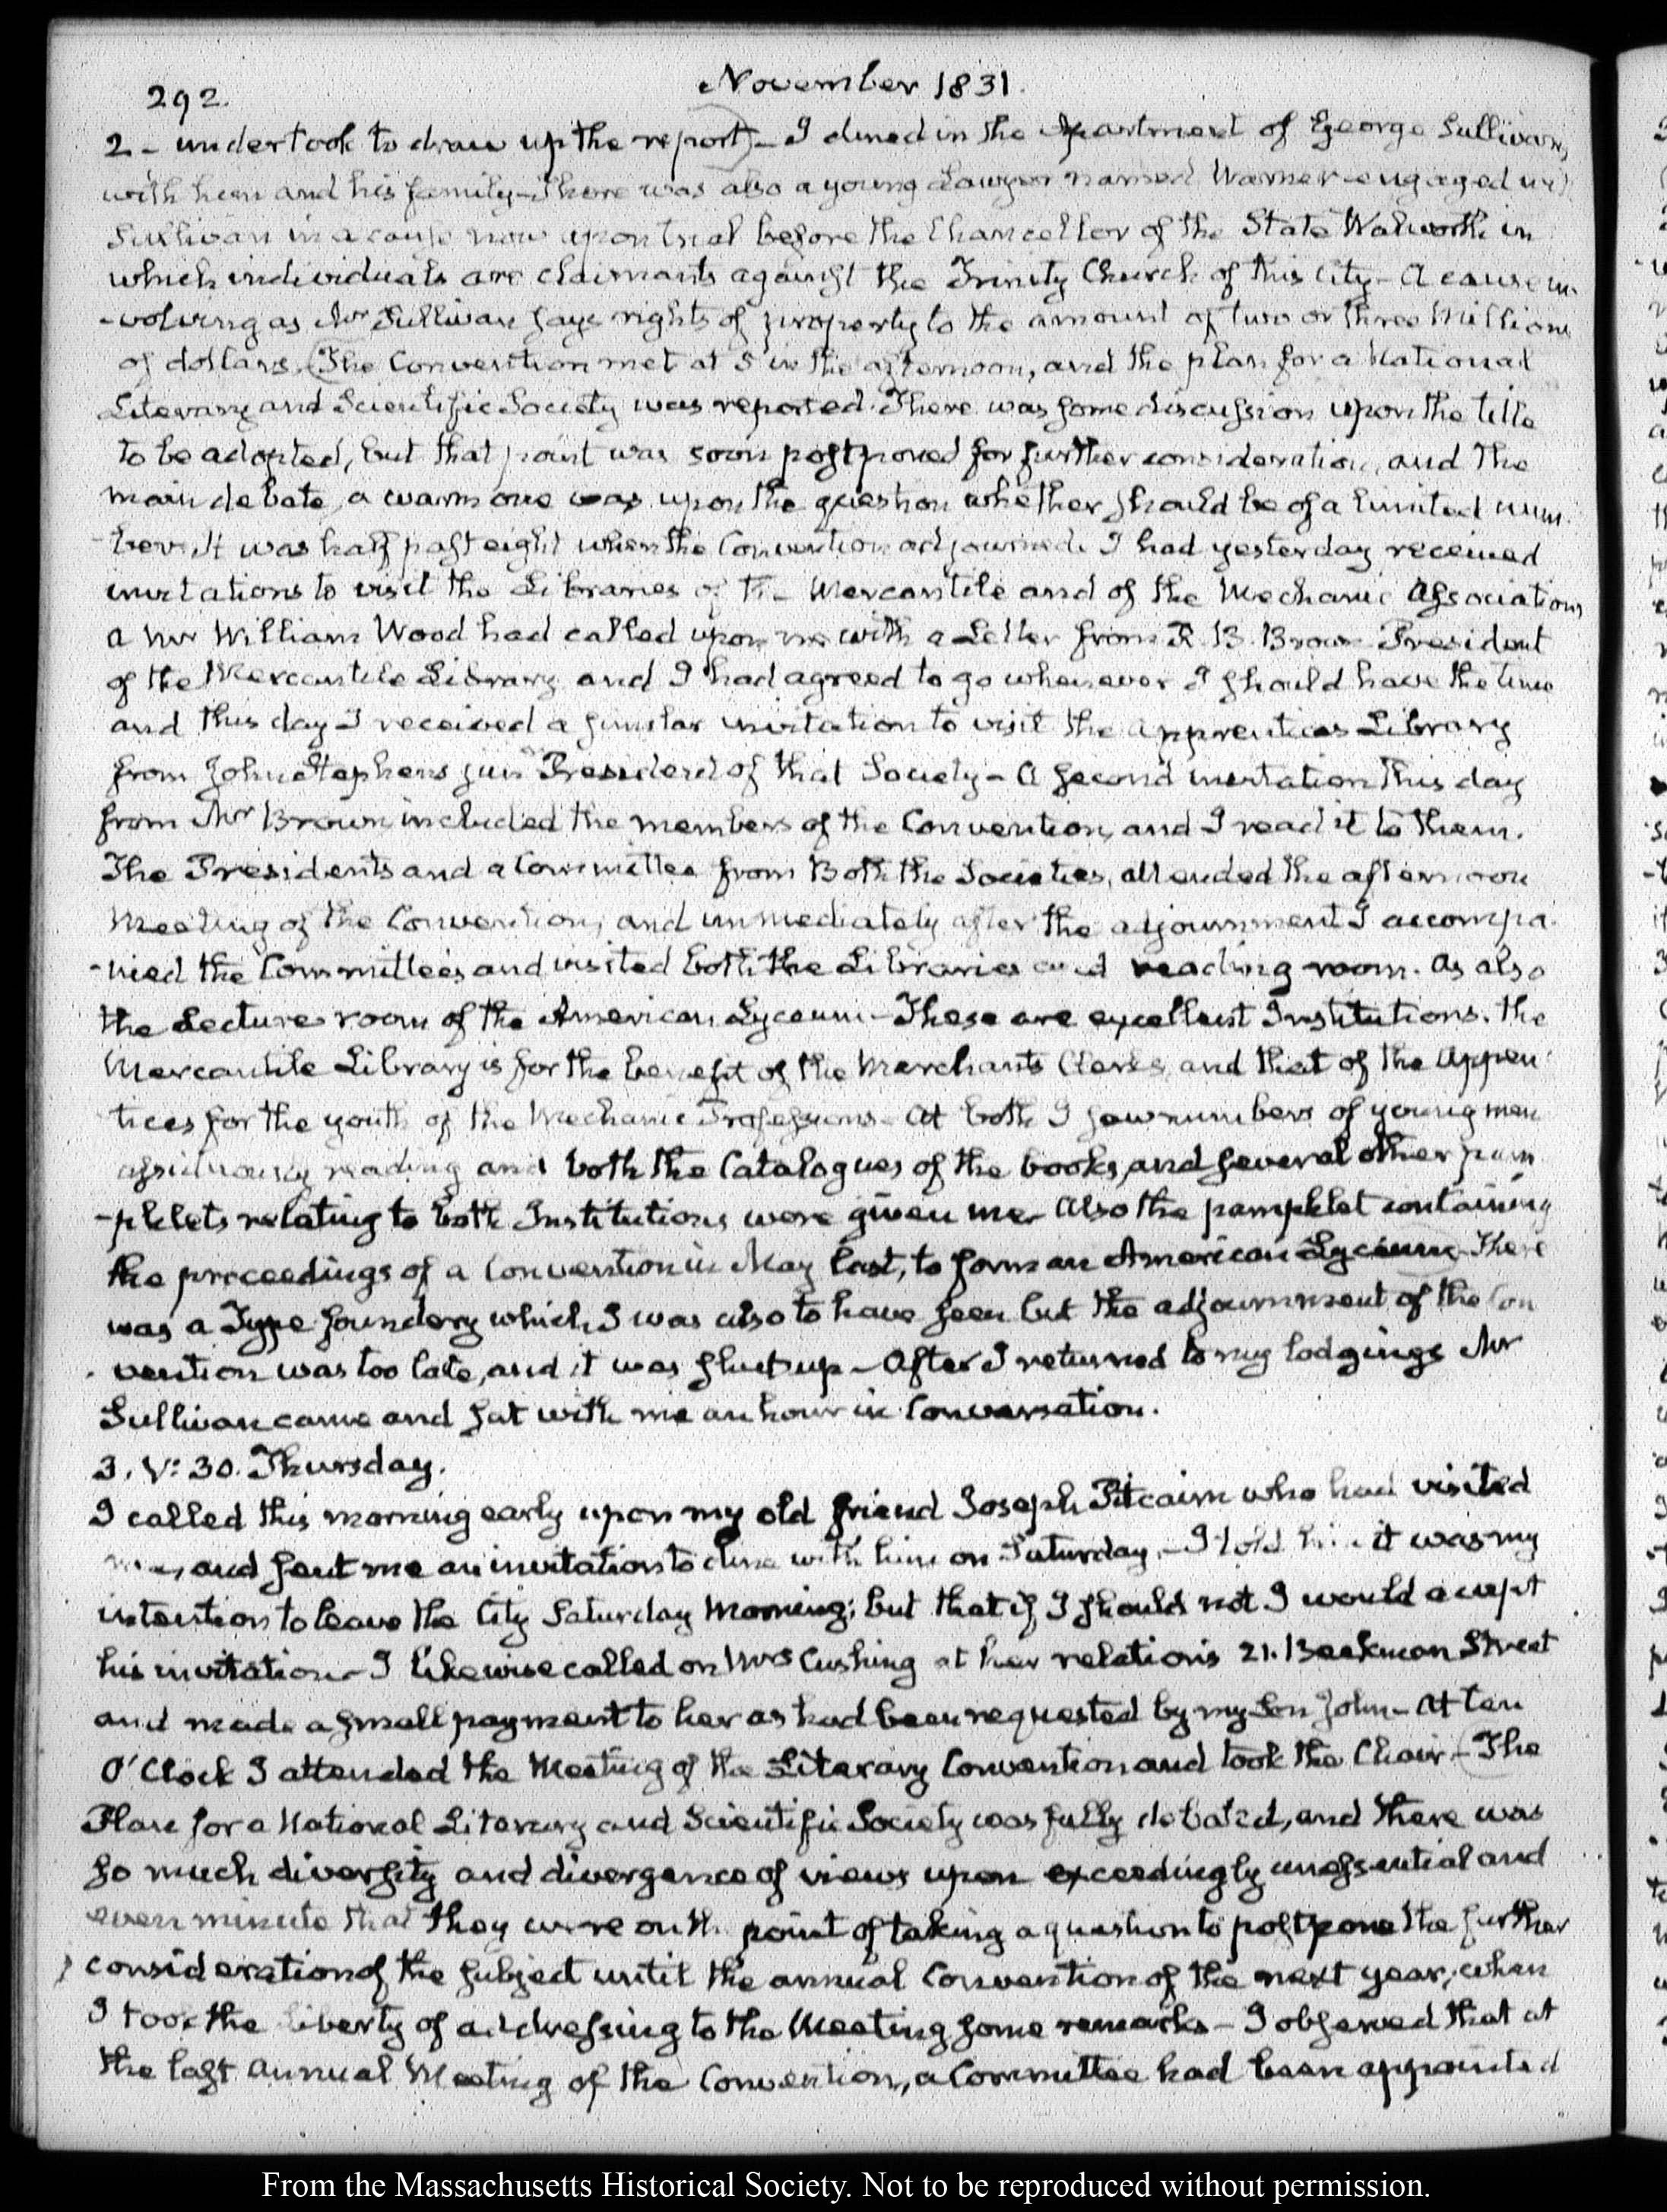 292.
November 1831.
2 - undertook to draw up the report) - I dined in the Apartment of George Sullivan,
with him and his family - There was also a young Lawyer named Warner engaged with
Sullivan in a cause now upon trial before the Chancellor of the State Walworth in
which individuals are claimants against the Trinity Church of this City - A cause in-
-volving as Mr Sullivan says rights of property to the amount of two or three Millions
of dollars. (The Convention met at 5 in the afternoon, and the plan for a National
Literary and Scientific Society was reported. There was some discussion upon the title
to be adopted, but that point was soon postponed for further consideration, and the
main debate, a warm one was upon the question whether should be of a limited num-
-ber. It was half past eight when the Convention adjourned. I had yesterday received
invitations to visit the Libraries of the Mercantile and of the Mechanic Associations
a Mr William Wood had called upon me with a Letter from R. B. Brown President
of the Mercantile Library and I had agreed to go whenever I should have the time
and this day I received a similar invitation to visit the apprentices Library
from John Stephens junr President of that Society - A second invitation this day
from Mr Brown, included the members of the Convention, and I read it to them.
The Presidents and a Committee from Both the Societies, attended the afternoon
Meeting of the Convention, and immediately after the adjournment I accompa-
-nied the Committees and visited both the Libraries and reading room. As also
the Lecture room of the American Lyceum - These are excellent Institutions. the
Mercantile Library is for the benefit of the Merchants Clerks, and that of the Appren-
tices for the youth of the Mechanic Professions - At both I saw numbers of young men
assiduously reading and both the Catalogues of the books, and several other pam-
-phlets relating to both Institutions were given me - Also the pamphlet containing
the proceedings of a Convention in May last, to form an American Lyceum - There
was a Type foundery which I was also to have seen but the adjournment of the Con-
-vention was too late, and it was shut up - After I returned to my lodgings Mr
Sullivan came and sat with me an hour in Conversation.
3. V: 30. Thursday.
I called this morning early upon my old friend Joseph Pitcairn who had visited
me, and sent me an invitation to dine with him on Saturday. - I told him it was my
intention to leave the City Saturday Morning; but that if I should not I would accept
his invitation - I likewise called on Mrs Cushing at her relations 21. Beekman Street
and made a small payment to her as had been requested by my Son John - At ten
O'Clock I attended the Meeting of the Literary Convention and took the Chair - (The
Plan for a National Literary and Scientific Society was fully debated, and there was
so much diversity and divergence of views upon exceedingly unessential and
even minute that they were on the point of taking a question to postpone the further
consideration of the subject until the annual Convention of the next year; when
I took the liberty of addressing to the Meeting some remarks - I observed that at
the last annual Meeting of the Convention, a Committee had been appointed
From the Massachusetts Historical Society. Not to be reproduced without permission.